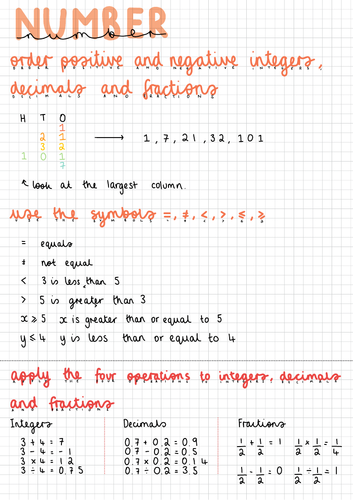 NUMBER
order positive and negative integers,
decimals and fractions
H T O
1
2 1
3 2
1 0 1
7
→ 1, 7, 21, 32, 101
↖ look at the largest column.
use the symbols =, ≠, <, >, ≤, ≥
= equals
≠ not equal
< 3 is less than 5
> 5 is greater than 3
x ≥ 5 x is greater than or equal to 5
y ≤ 4 y is less than or equal to 4
apply the four operations to integers, decimals
and fractions
Integers
3 + 4 = 7
3 - 4 = -1
3 × 4 = 12
3 ÷ 4 = 0.75
Decimals
0.7 + 0.2 = 0.9
0.7 - 0.2 = 0.5
0.7 × 0.2 = 0.14
0.7 ÷ 0.2 = 3.5
Fractions
1/2 + 1/2 = 1 1/2 × 1/2 = 1/4
1/2 - 1/2 = 0 1/2 ÷ 1/2 = 1